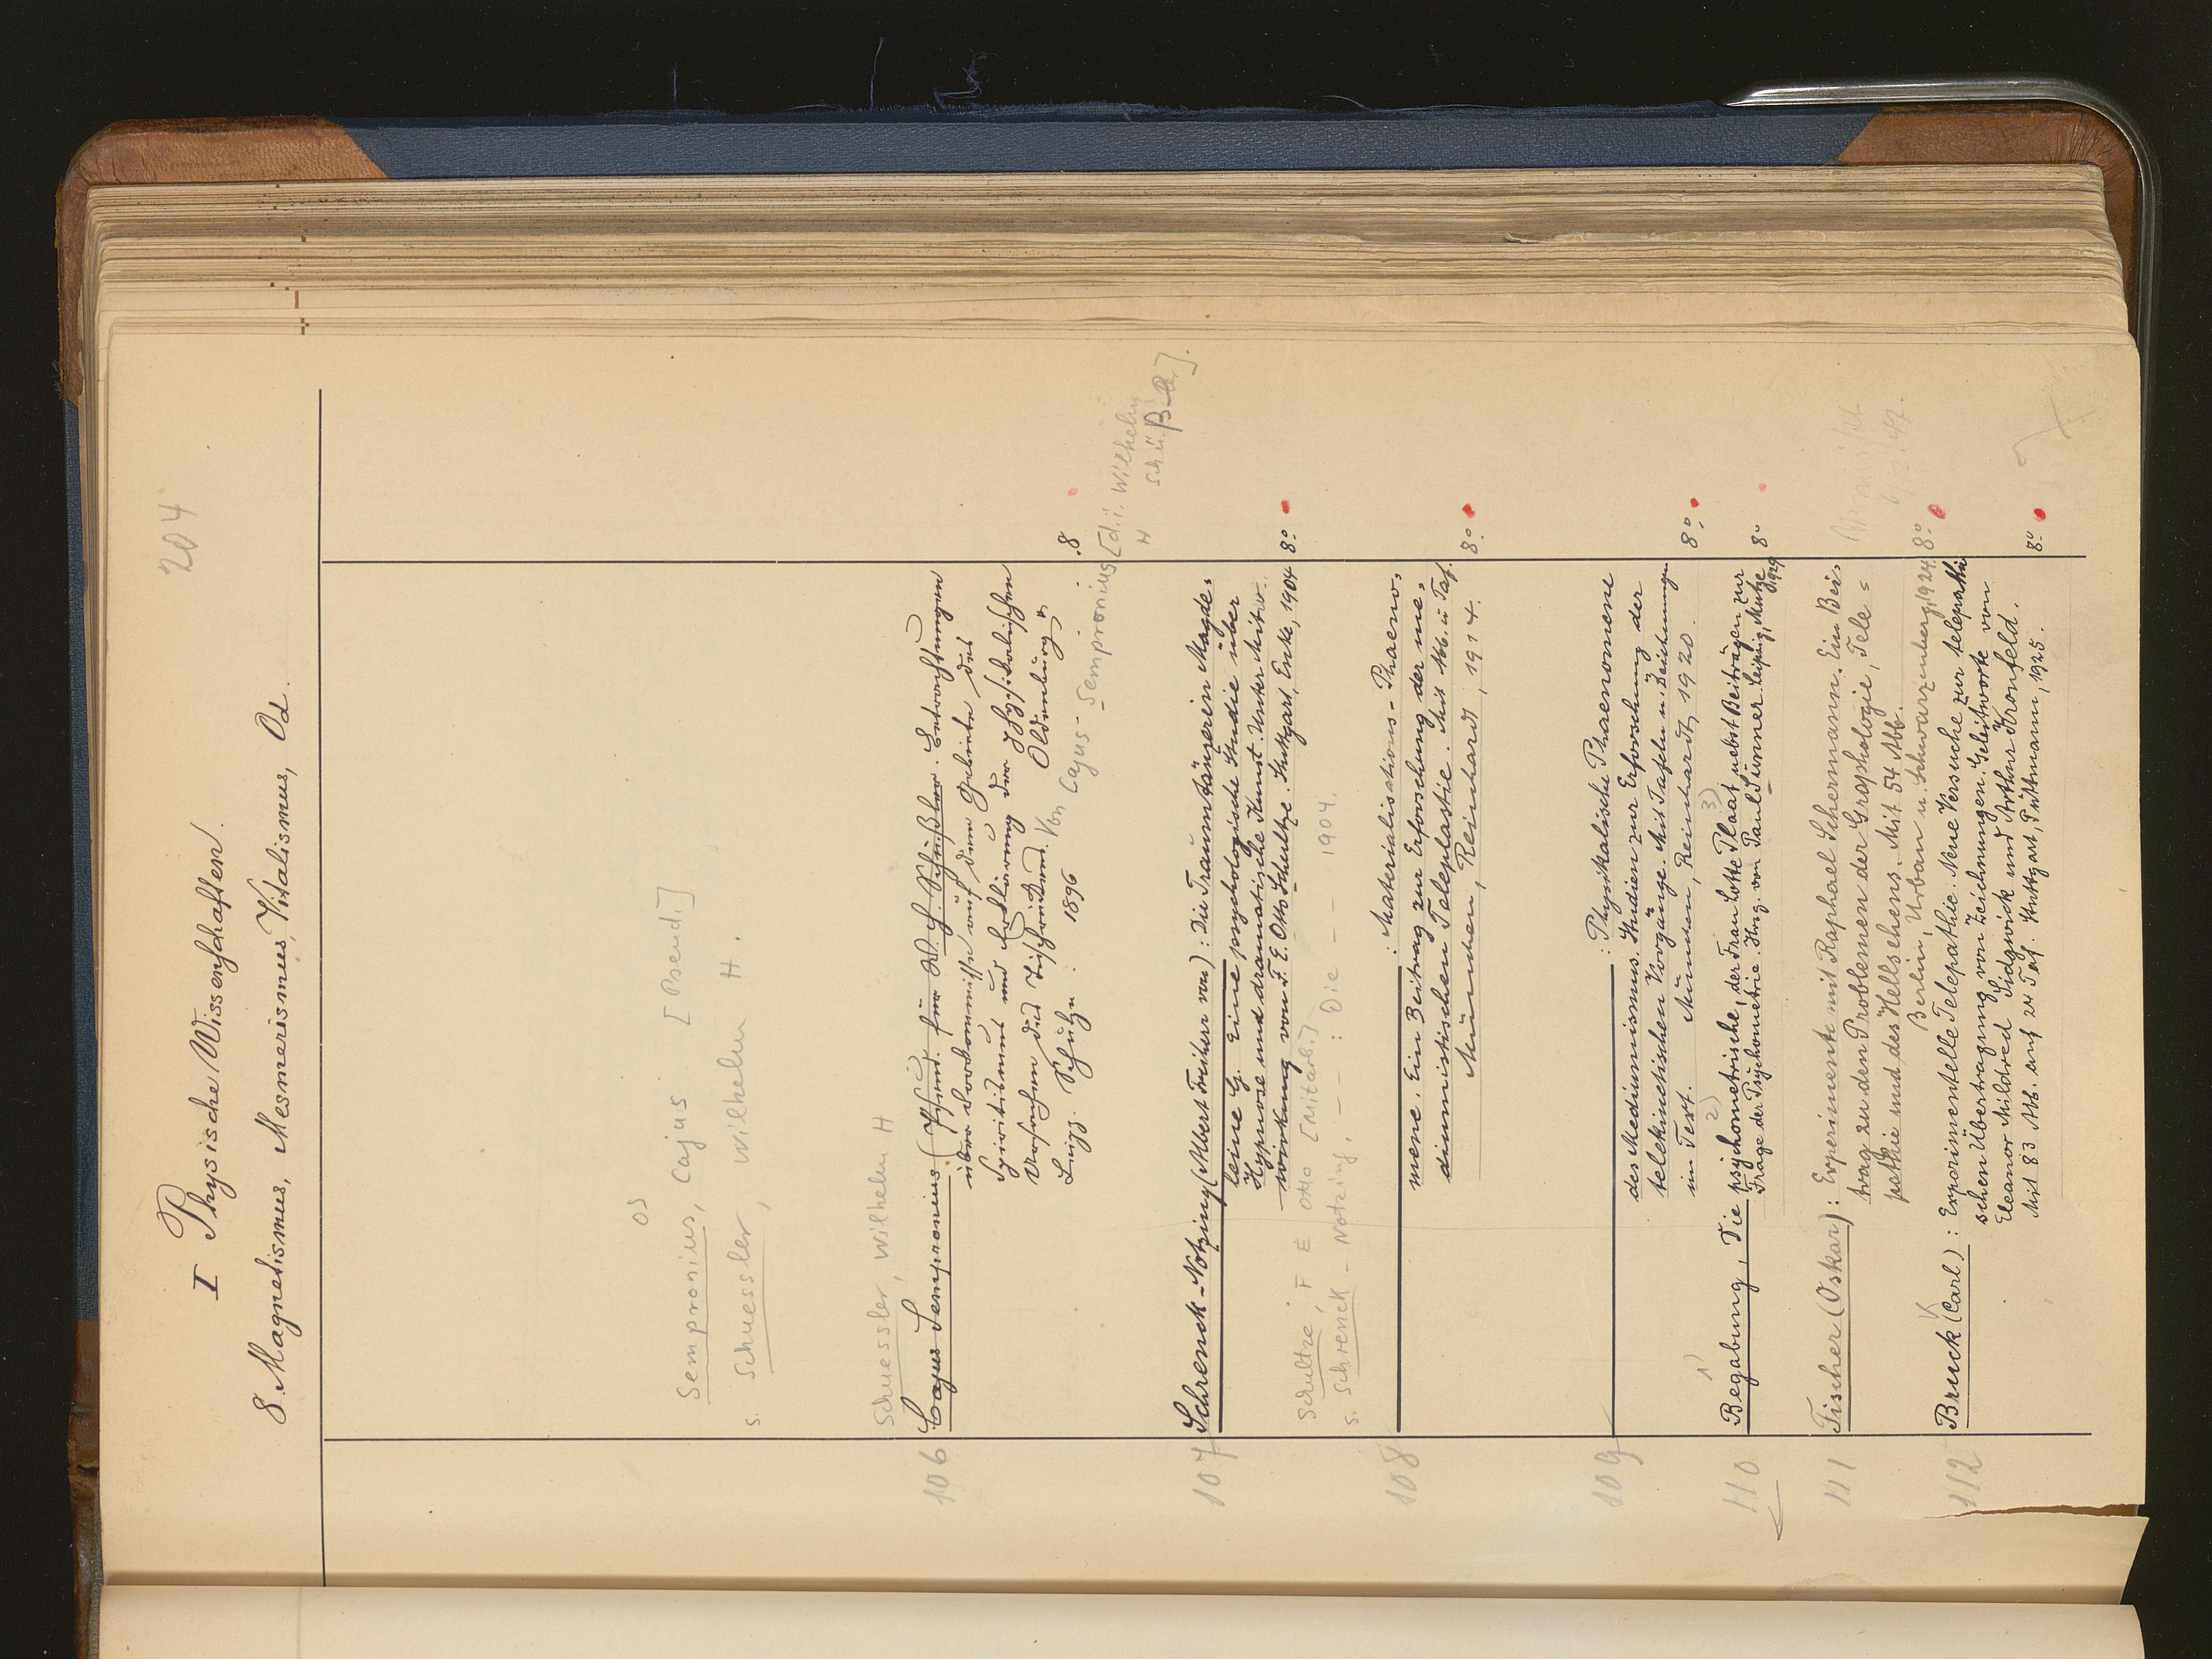 204
I Physische Wissenschaften.
8. Magnetismus, Mesmerismus, Vitalismus, Od.
o)
Sempronius, Cajus [Pseud.]
s. Schuessler, Wilhelm H.
Schuessler, Wilhelm H
106 Cajus Sempronius (Pseud. für W. H. Schüßler. Betrachtungen
über Vorkommnisse auf dem Gebiete des
Spiritismus und Erklärung der physikalischen
Ursachen des Tischrückens. Von Cajus-Sempronius [d.i. Wilhelm
H Schüßler].
Leipz. Schulze. 1896 8
107 Schrenck-Notzing (Albert Freiherr von): Die Traumtänzerin Magde-
leine G. Eine psychologische Studie über
Hypnose und dramatische Kunst. Unter Mit-
wirkung von F. E. Otto Schultze. Stuttgart, Enke, 1904 8º.
Schultze, F E Otto [Mitarb.]
s. Schrenck-Notzing, - - : Die - - 1904.
108 : Materialisations-Phaeno-
mene. Ein Beitrag zur Erforschung der me-
diumistischen Teleplastie. Mit Abb. u Taf.
München, Reinhardt, 1914. 8º.
109 : Physikalische Phaenomene
des Mediumismus. Studien zur Erforschung der
telekinetischen Vorgänge. Mit Tafeln u. Zeichnungen
im Text. München, Reinhardt, 1920. 8º.
1) 2) 3)
110 Begabung, Die psychometrische, der Frau Lotte Plaat nebst Beiträgen zur
Frage der Psychometrie. Hrsg. von Paul Sünner. Leipzig, Mutze, 1929 8º
111 Fischer (Oskar): Experimente mit Raphael Schermann. Ein Bei-
trag zu den Problemen der Graphologie, Tele-
pathie und des Hellsehens. Mit 54 Abb.
Berlin, Urban u. Schwarzenberg, 1924. 8º.
K
112 Bruck (Carl): Experimentelle Telepathie. Neue Versuche zur telepathi
schen Übertragung von Zeichnungen. Geleitworte von
Eleanor Mildred Sidgwick und Arthur Kronfeld.
Mit 83 Abb. auf 24 Taf. Stuttgart, Püttmann, 1925. 8º.